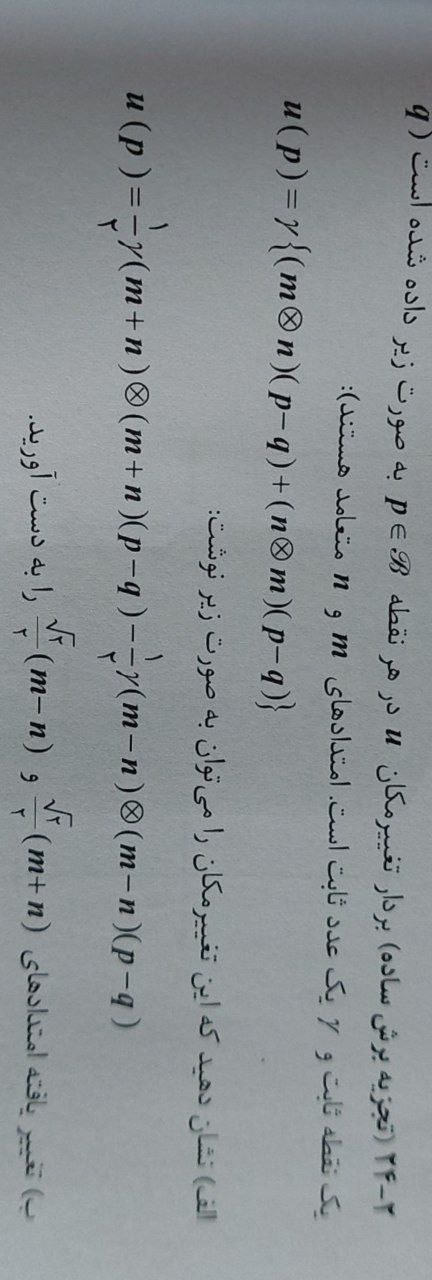 ۲-۲۴ (تجزیه برش ساده) بردار تغییرمکان u در هر نقطه p ∈ ℬ به صورت زیر داده شده است (q
یک نقطه ثابت و γ یک عدد ثابت است. امتدادهای m و n متعامد هستند):
u(p) = γ{(m⊗n)(p−q)+(n⊗m)(p−q)}
الف) نشان دهید که این تغییرمکان را می‌توان به صورت زیر نوشت:
u(p) = ۱/۲ γ(m+n)⊗(m+n)(p−q) − ۱/۲ γ(m−n)⊗(m−n)(p−q)
ب) تغییر یافته امتدادهای √۲/۲ (m+n) و √۲/۲ (m−n) را به دست آورید.